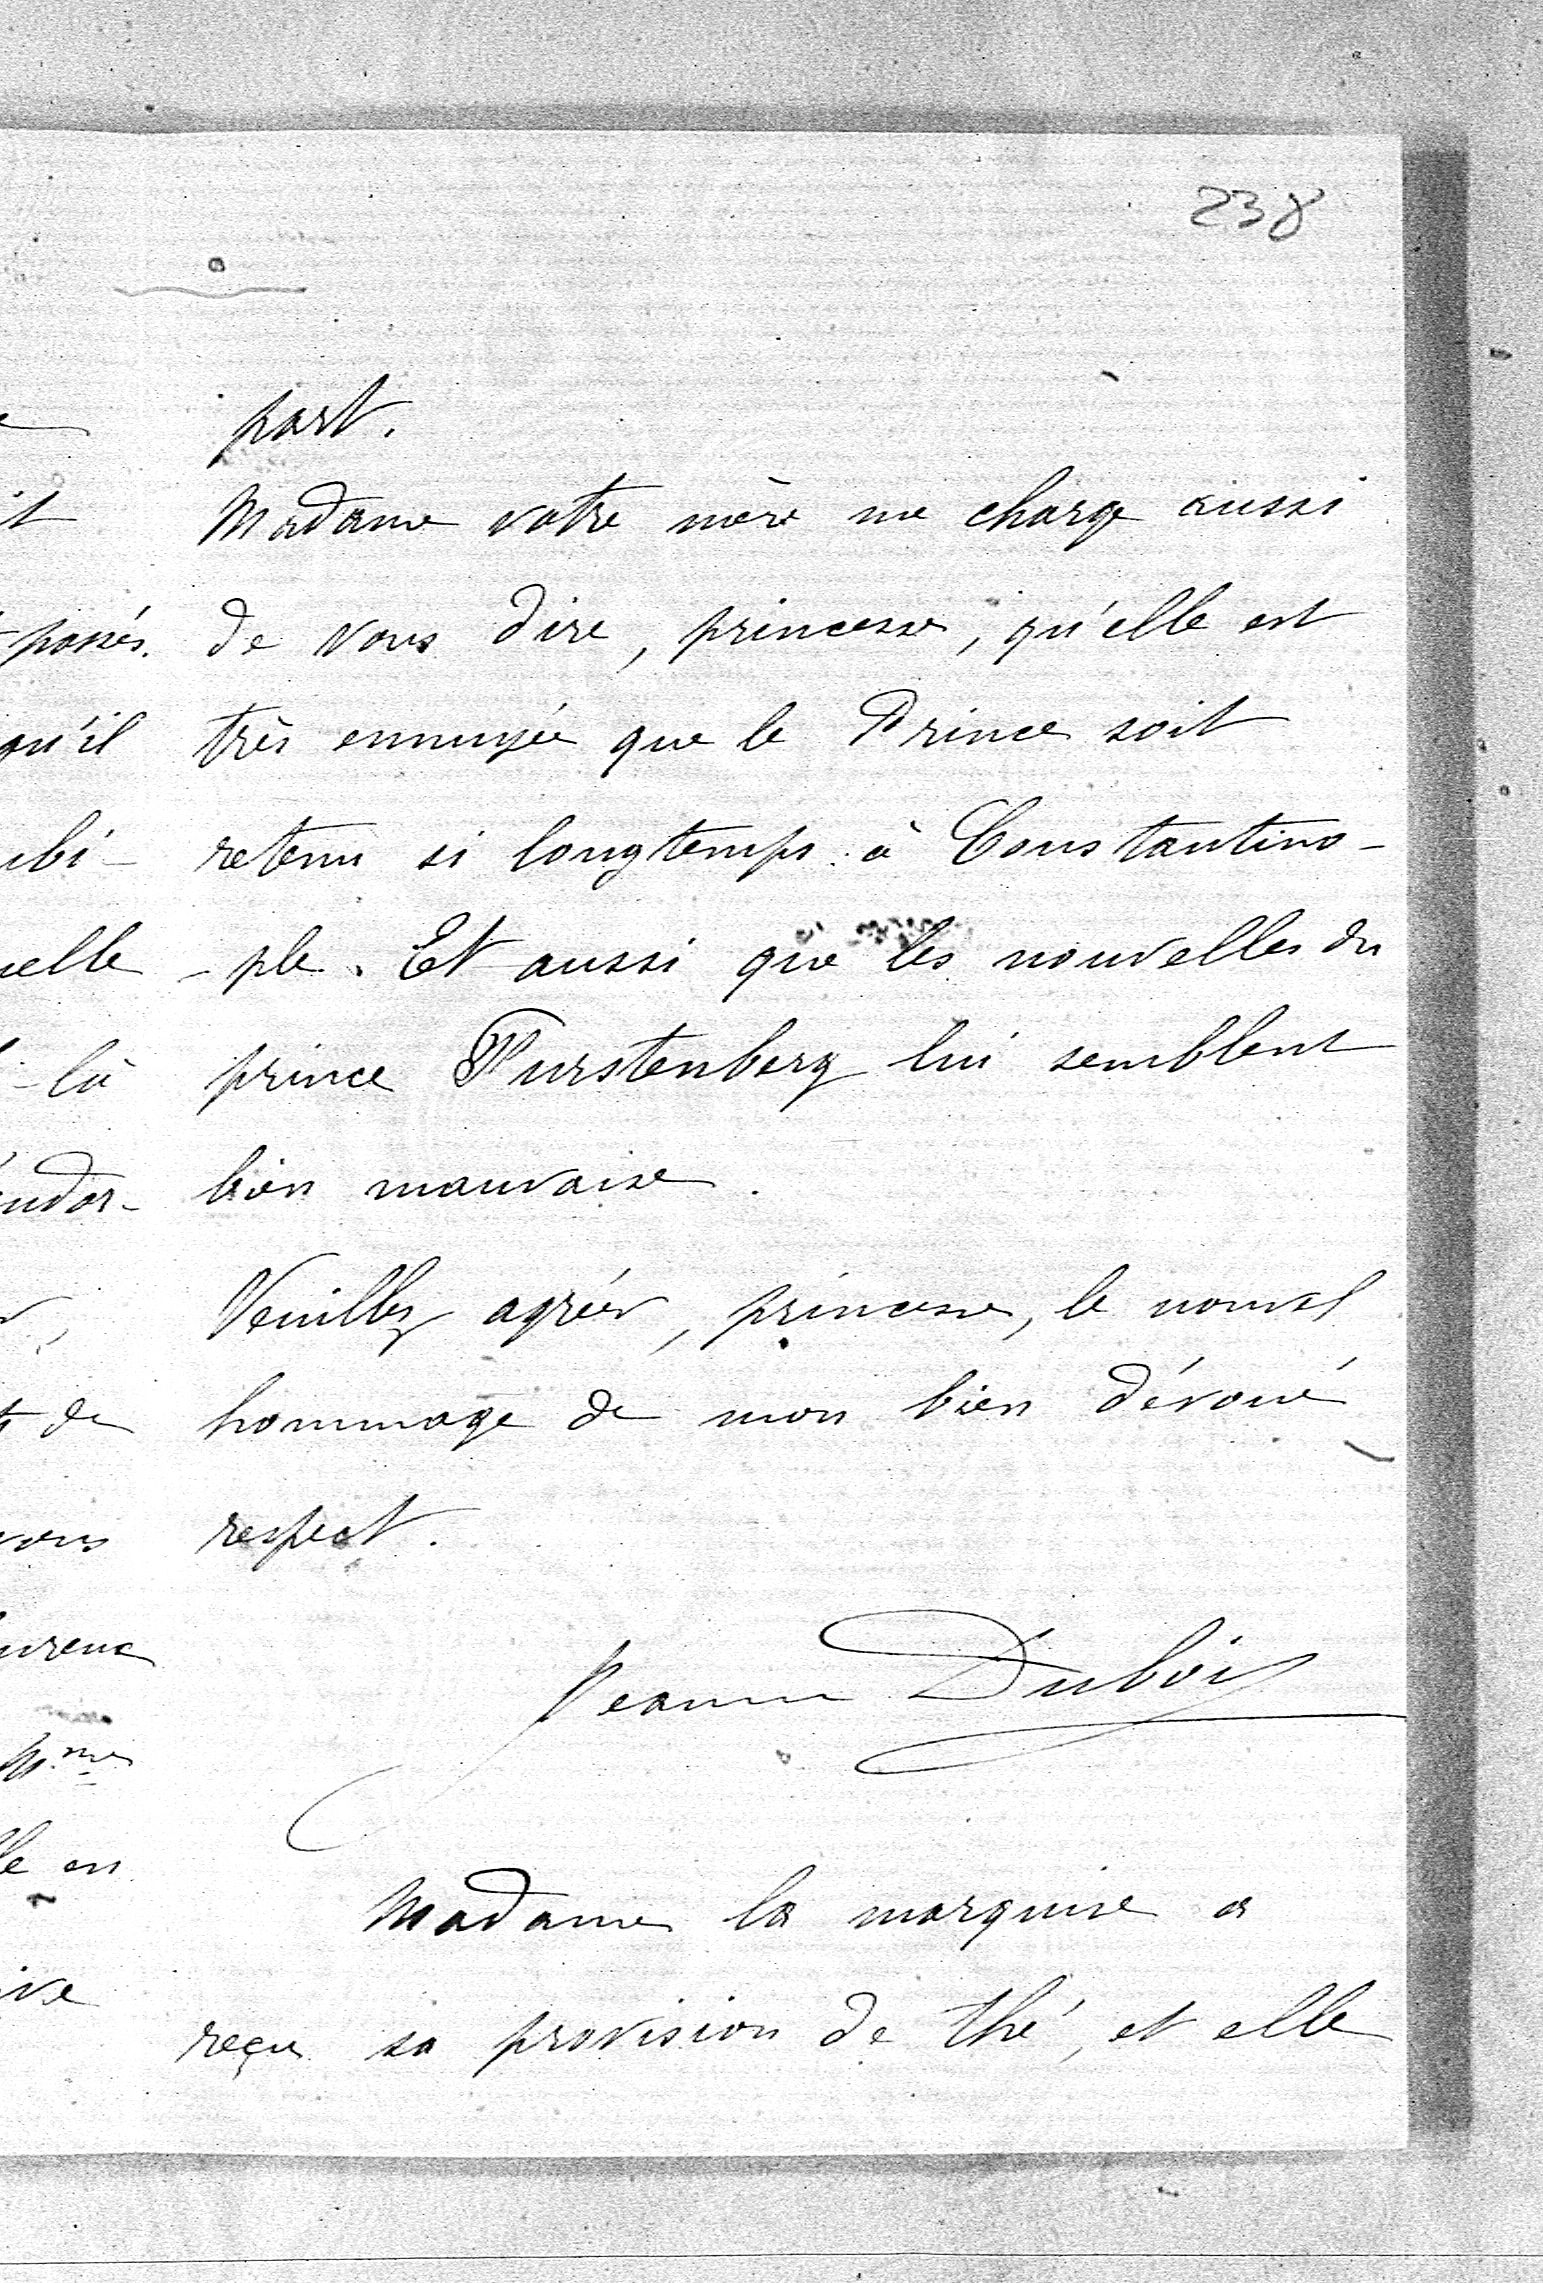 238
part.
Madame votre mère me charge aussi
de vous dire, princesse, qu'elle est
très ennuyée que le Prince soit
retenu si longtemps à Constantino-
-ple. Et aussi que les nouvelles du
prince Furstenberg lui semblent
bien mauvaise.
Veuillez agréer, princesse, le nouvel
hommage de mon bien dévoué
respect.
Jeanne Dubois
Madame la marquise a
reçu sa provision de thé, et elle
it
passés.
qu'il
ubi-
uelle
-là
endor-
de
vous
Mme
le en
ive